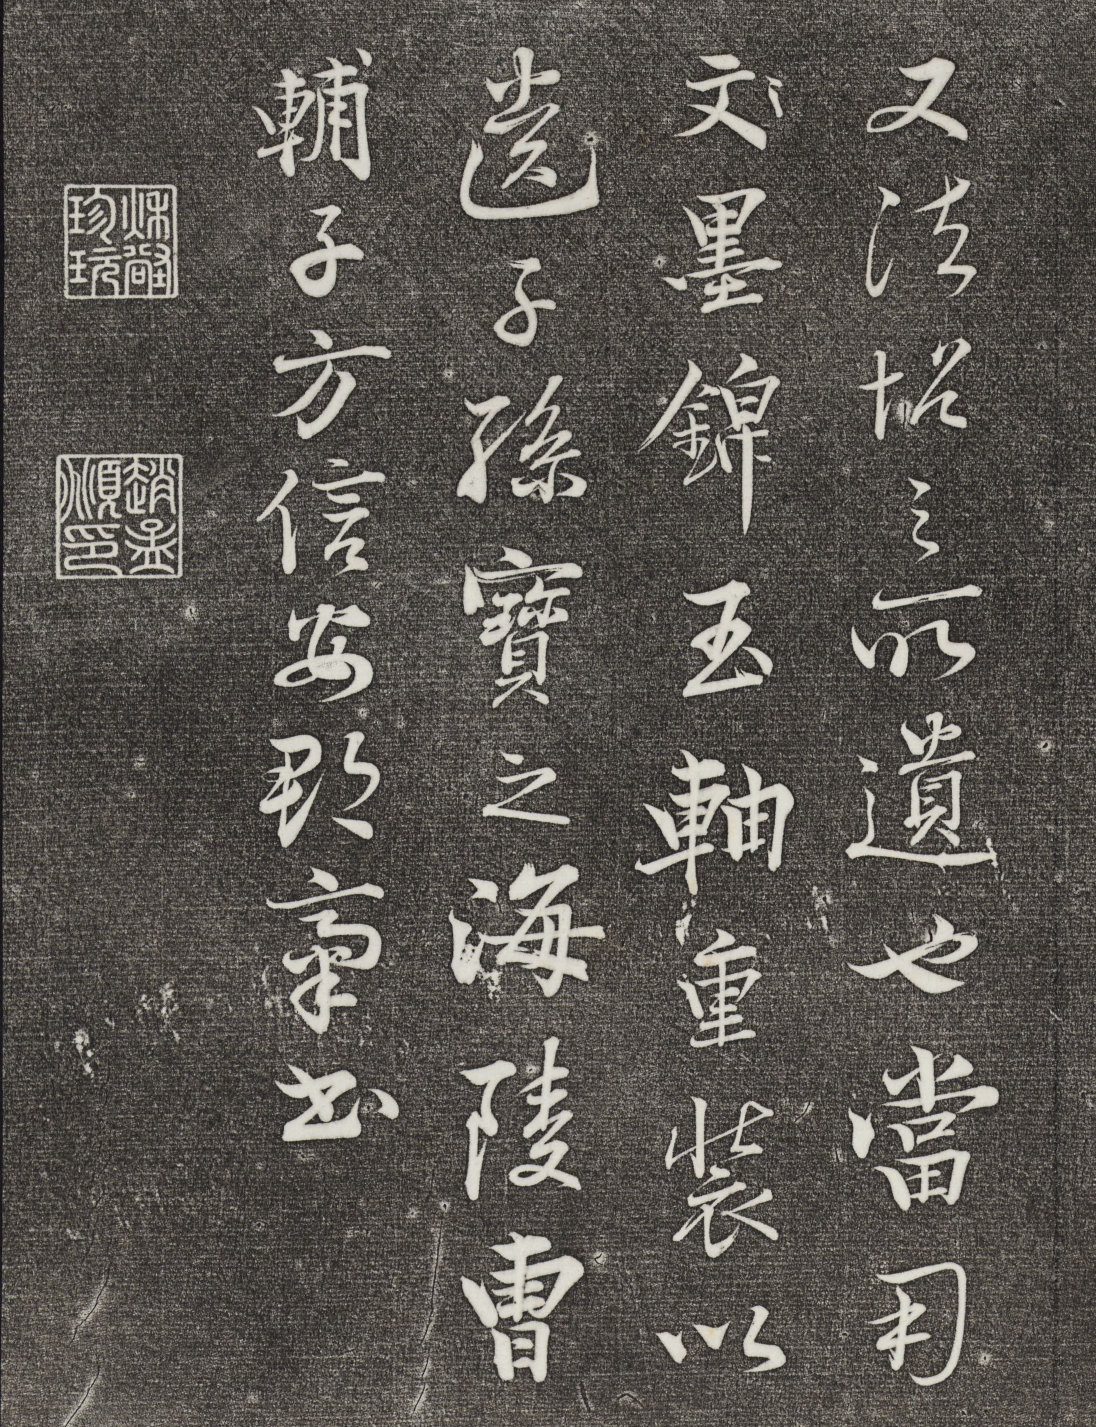 又法帖之所遺也當用
文墨錦玉軸重裝以
遺子孫寶之海陵曹
輔子方信安郡齋書
秋壑珍玩
趙孟頫印